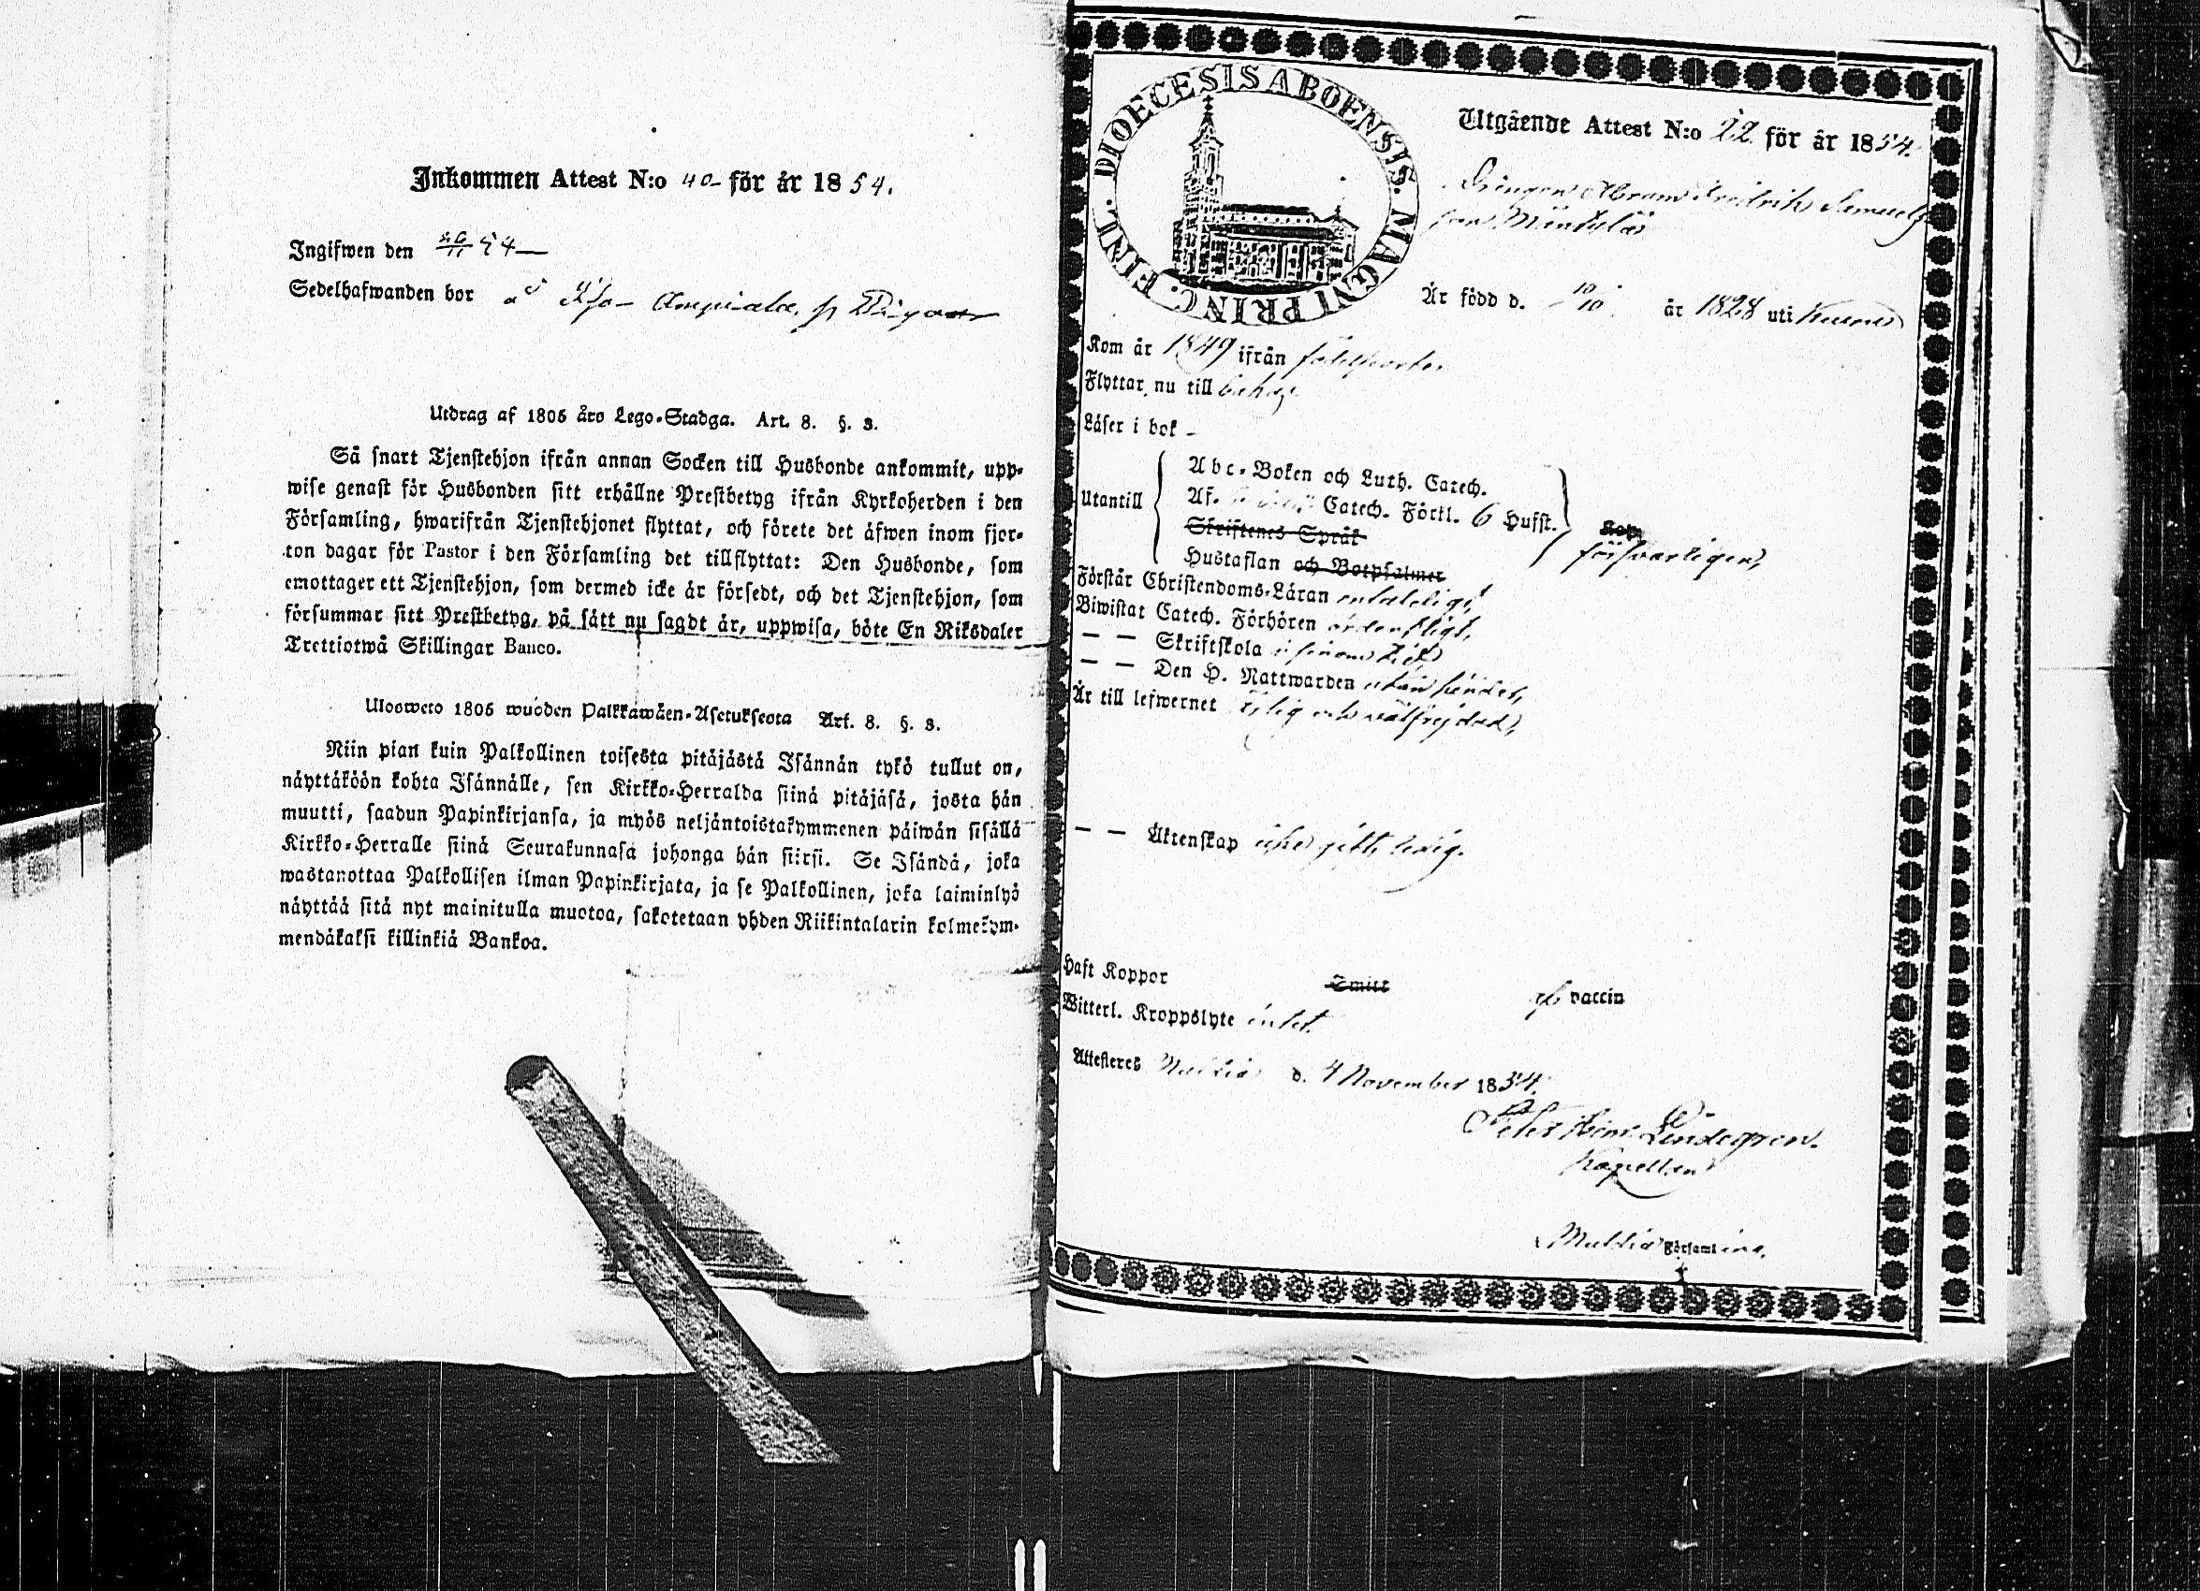 Inkommen Attest N:o 40 för år 1854.
Ingifwen den 54
Sedelhafwanden bor
Utdrag af 1805 års Lego-Stadga. Art. 8. §. 3.
Så snart Tjenstehjon ifrån annan Socken till Husbonde ankommit, upp-
wise genast för Husbonden sitt erhållne Prestbetyg ifrån Kyrkoherden i den
Församling, hwarifrån Tjenstehjonet flyttat, och förete det äfwen inom fjor-
ton dagar för Pastor i den Församling det tillflyttat: Den Husbonde, som
emottager ett Tjenstehjon, som dermed icke är försedt, och det Tjenstehjon, som
försummar sitt Prestbetyg, på sätt nu sagdt är, uppwisa, böte En Riksdaler
Trettiotwå Skillingar Banco.
Ulosweto 1805 wuoden Palkkawäen-Asetuksesta Art. 8. §. 3.
Niin pian kuin Palkollinen toisesta pitäjästä Isännän tykö tullut on,
näyttäköön kohta Isännälle, sen Kirkko-Herralda siinä pitäjäsä, josta hän
muutti, saadun Papinkirjansa, ja myös neljäntoistakymmenen päiwän sisällä
Kirkko-Herralle siinä Seurakunnasa johonga hän siirsi. Se Isändä, joka
wastanottaa Palkollisen ilman Papinkirjata, ja se Palkollinen, joka laiminlyö
näyttää sitä nyt mainitulla muotoa, sakotetaan yhden Riikintalarin kolmekym-
mendäkaksi killinkiä Bankoa.
DIOECESIS ABOENSIS. MAGNI PRINC. FINL.
Utgående Attest N:o 22 för år 1854.
Drengen Abram Fredrik Samuels
son Mäntylä
Är född d. 10/10 år 1828 uti
Kom år 1849 ifrån
Flyttar nu till
Läser i bok -
Utantill
Abc-Boken och Luth. Catech.
Af. Catech. Förkl. 6 Hufst.
Skriftenes Språk
Hustaflan och Botpsalmer
försvarligen,
Förstår Christendoms-Läran
Biwistat Catech. Förhören ordentligt,
— — Skriftskola i sinom tid
— — Den H. Nattwarden
Är till lefwernet ärlig och välfrejdad,
— — Äktenskap icke gift, ledig.
Haft Koppor Smitt af vaccin
Witterl. Kroppslyte intet.
Attesteres Multia d. 4 November 1854.
Lindegren.
Kapellan
Multia Församling.